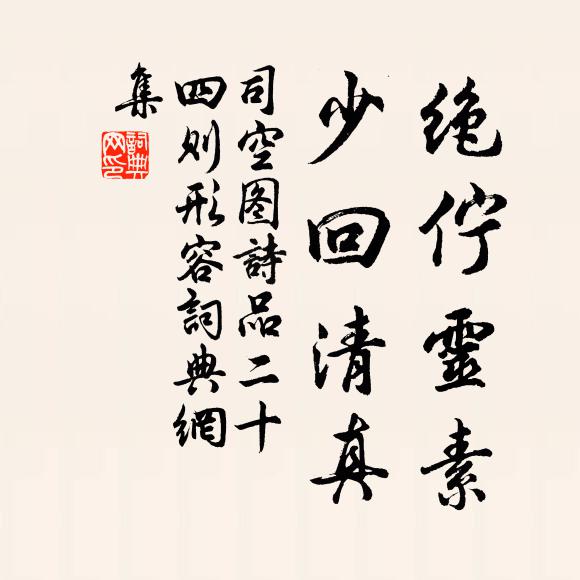 绝佇靈素
少回清真
司空图詩品二十
四则形容詞典網
集
詞典网印